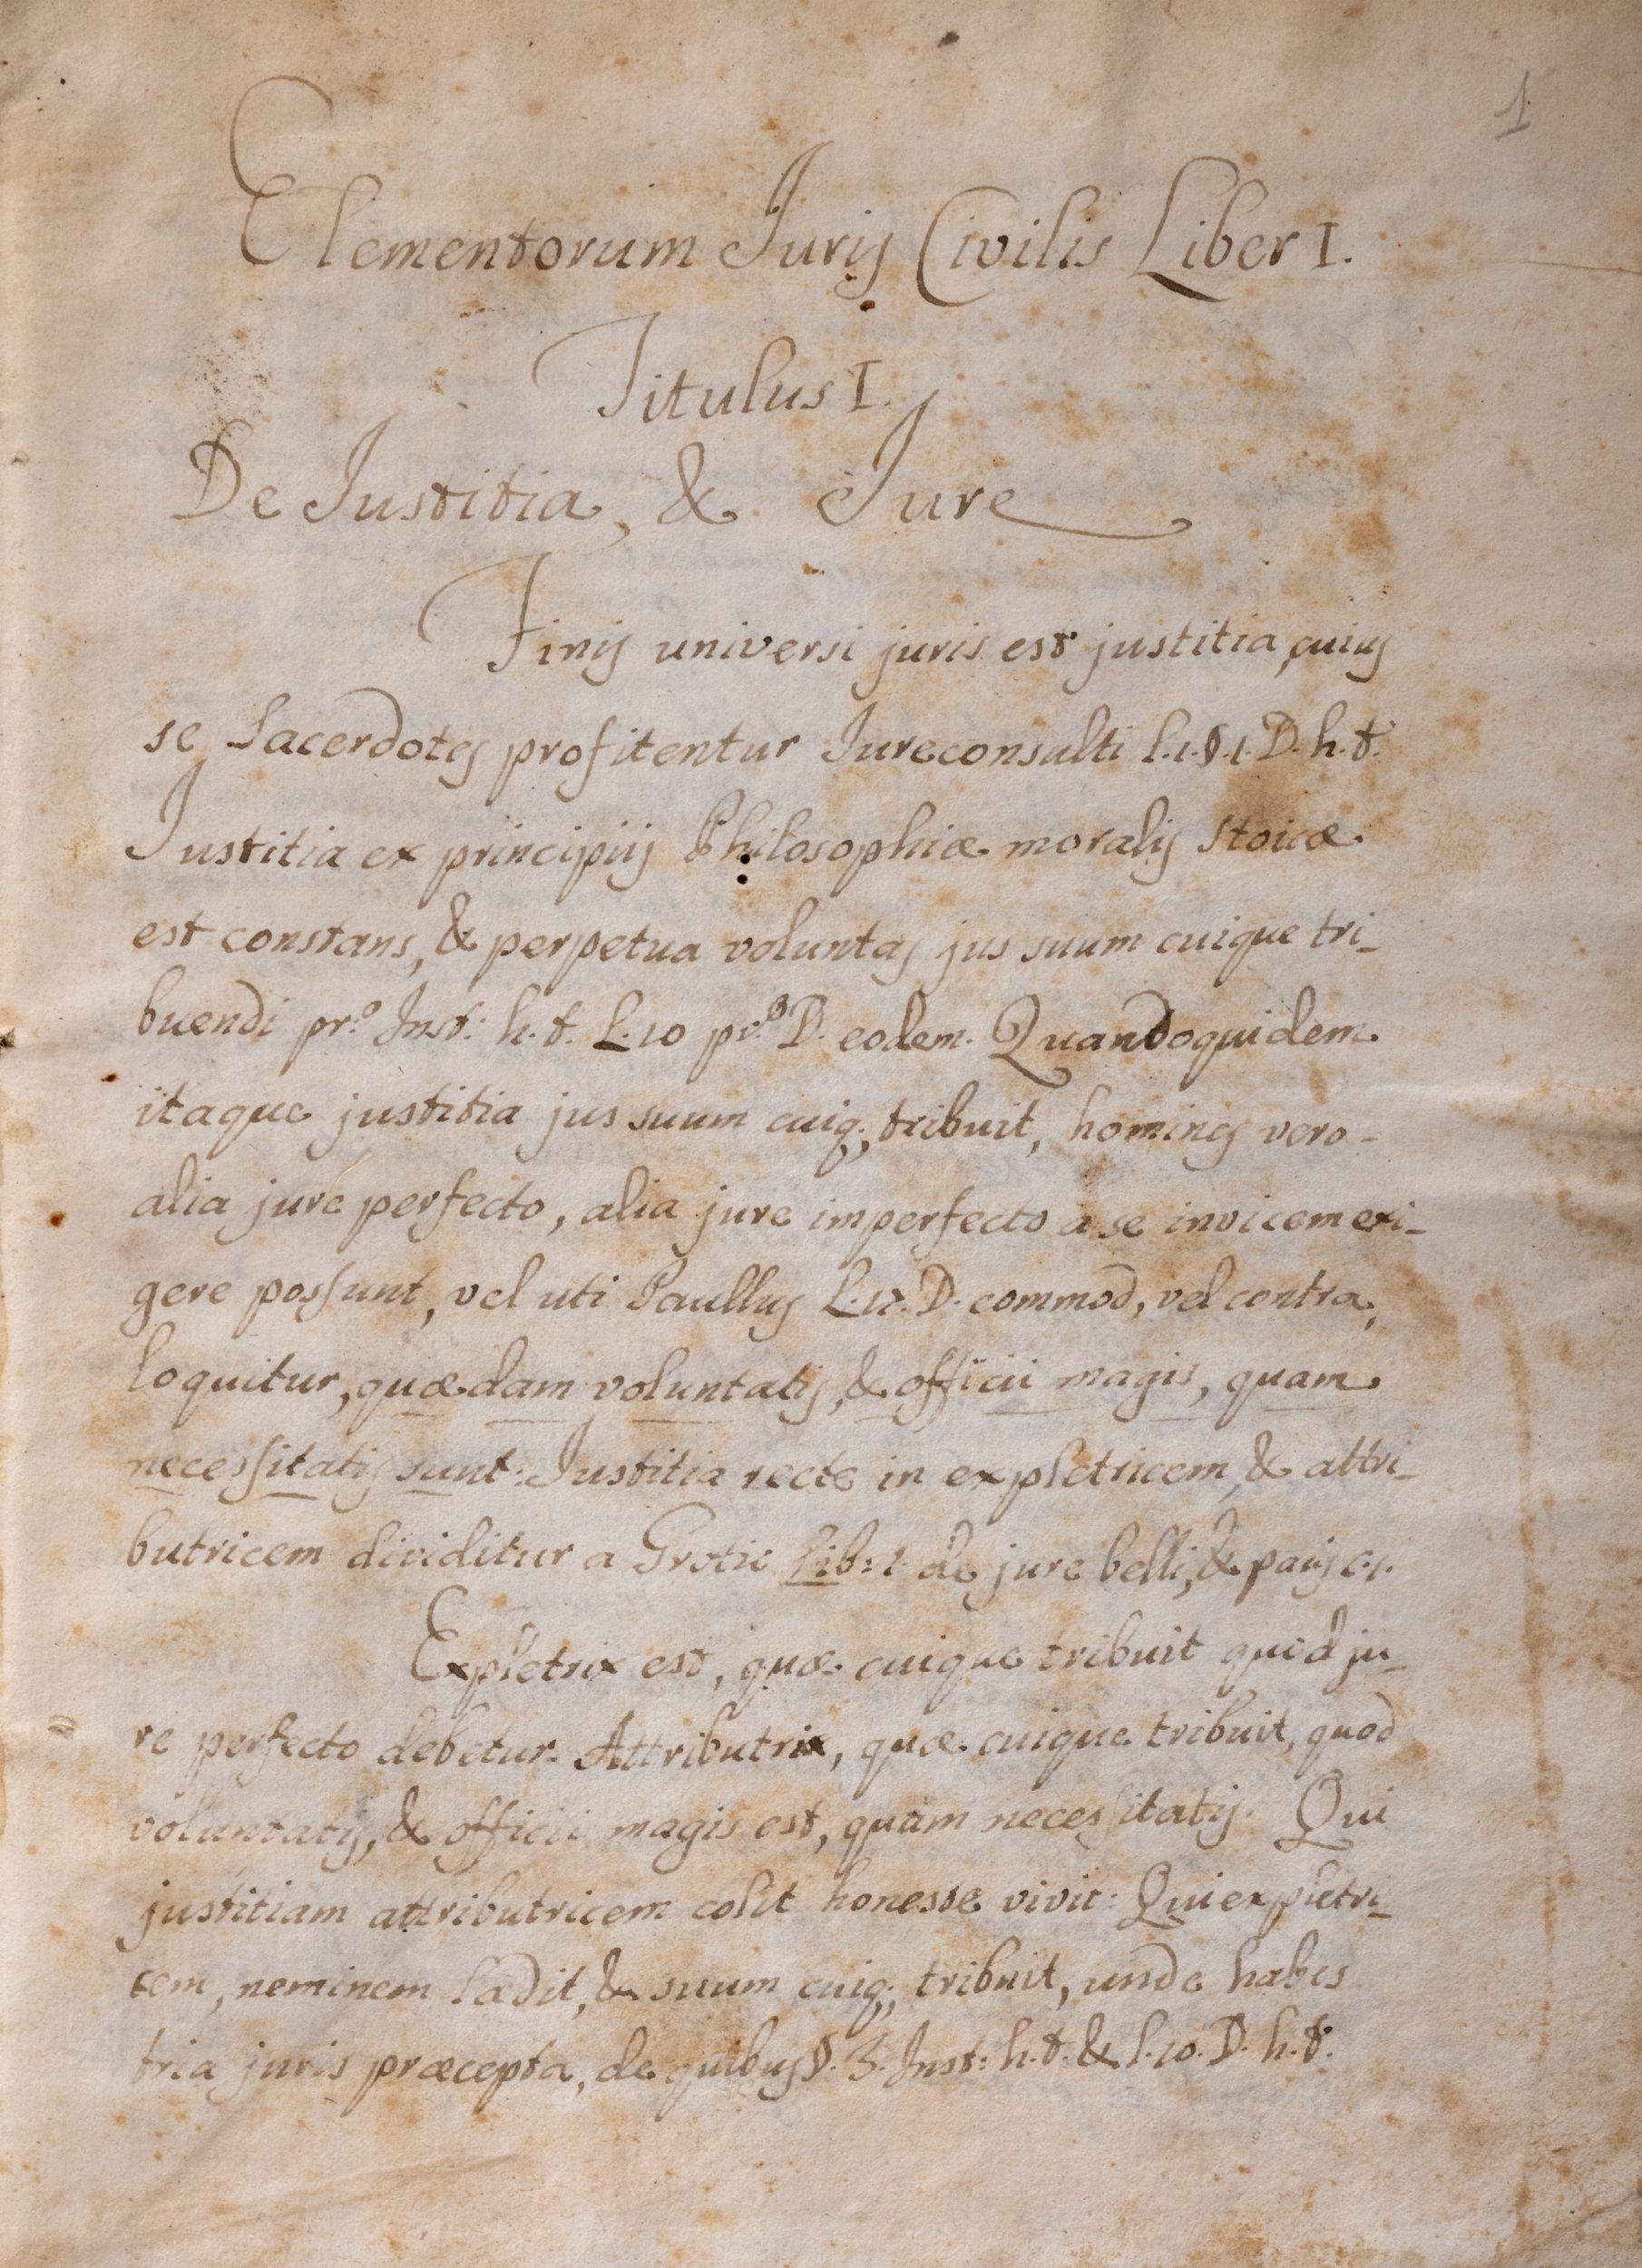 1
Elementorum Juris Civilis Liber I.
Titulus I.
De Justitia, & Jure
Finis universi juris est justitia, cuius
se Sacerdotes profitentur Jureconsulti l.1.§.1. D. h. t.
Justitia ex principiis Philosophiæ moralis Stoicæ
est constans, & perpetua voluntas jus suum cuique tri-
buendi pr.º Inst: h. t. L. 10 pr.º D. eodem. Quandoquidem
itaque justitia jus suum cuiq; tribuit, homines vero
alia jure perfecto, alia jure imperfecto a se invicem exi-
gere possunt, vel uti Paullus L. 17. D. commod, vel contra,
loquitur, quædam voluntatis, & officii magis, quam
necessitatis sunt: Justitia recte in expletricem, & attri-
butricem dividitur a Grotio Lib: 1. de jure belli, & pacis c. 1.
Expletrix est, quæ cuique tribuit quod ju-
re perfecto debetur. Attributrix, quæ cuique tribuit, quod
voluntatis, & officii magis est, quam necessitatis. Qui
justitiam attributricem colit honeste vivit: Qui expletri-
cem, neminem lædit, & suum cuiq; tribuit, unde habes
tria juris præcepta, de quibus §. 3. Inst: h. t. & l. 10. D. h. t.